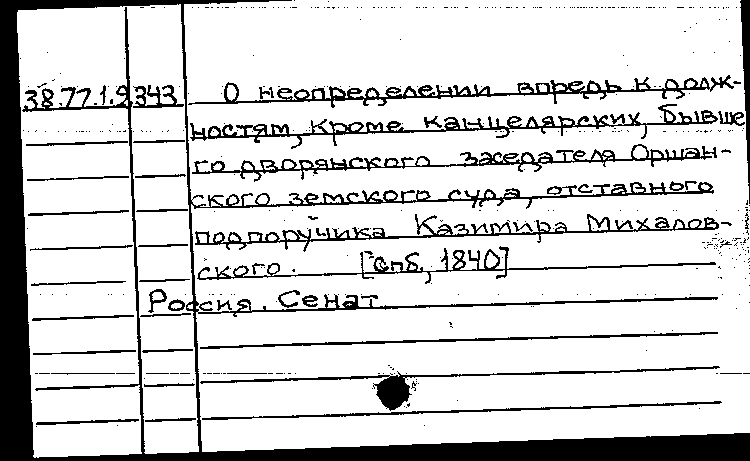 38.77.1.9 343 О неопределении впредь к долж-
ностям, кроме канцелярских, бывше
го дворянского заседателя Оршан-
ского земского суда, отставного
подпоручика Казимира Михалов-
ского. [Спб., 1840]
Россия. Сенат